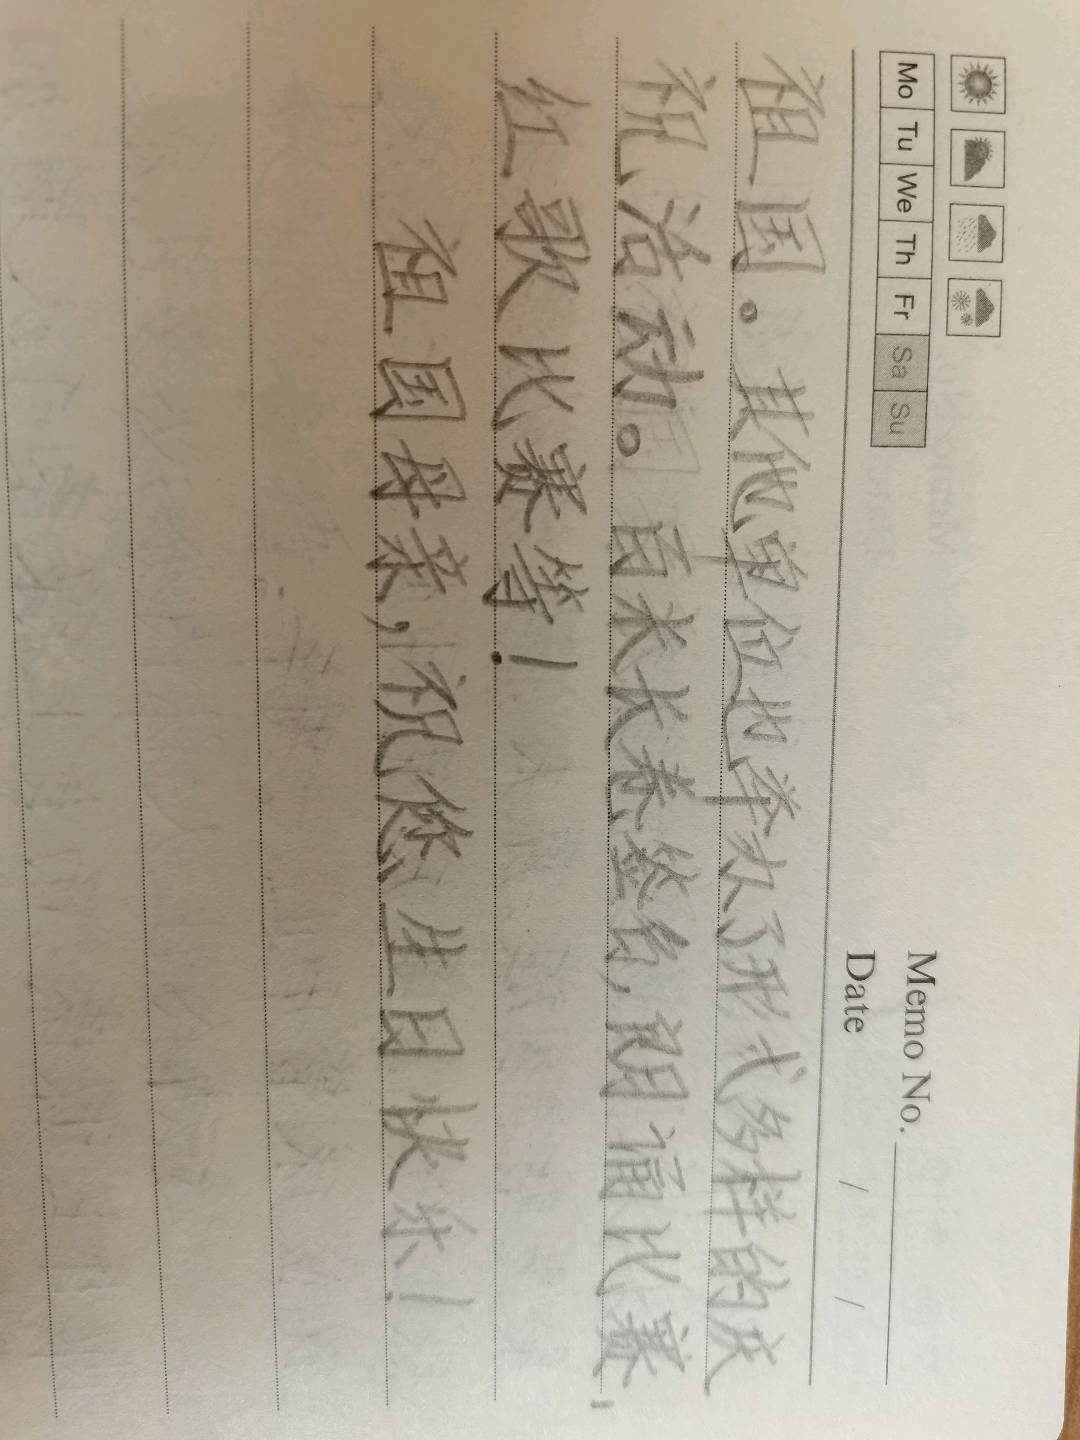 Memo No.
Mo Tu We Th Fr Sa Su
Date / /
祖国。其他单位也举办了形式多样的庆
祝活动。百米长卷签名,朗诵比赛,
红歌比赛等!
祖国母亲,祝您生日快乐!